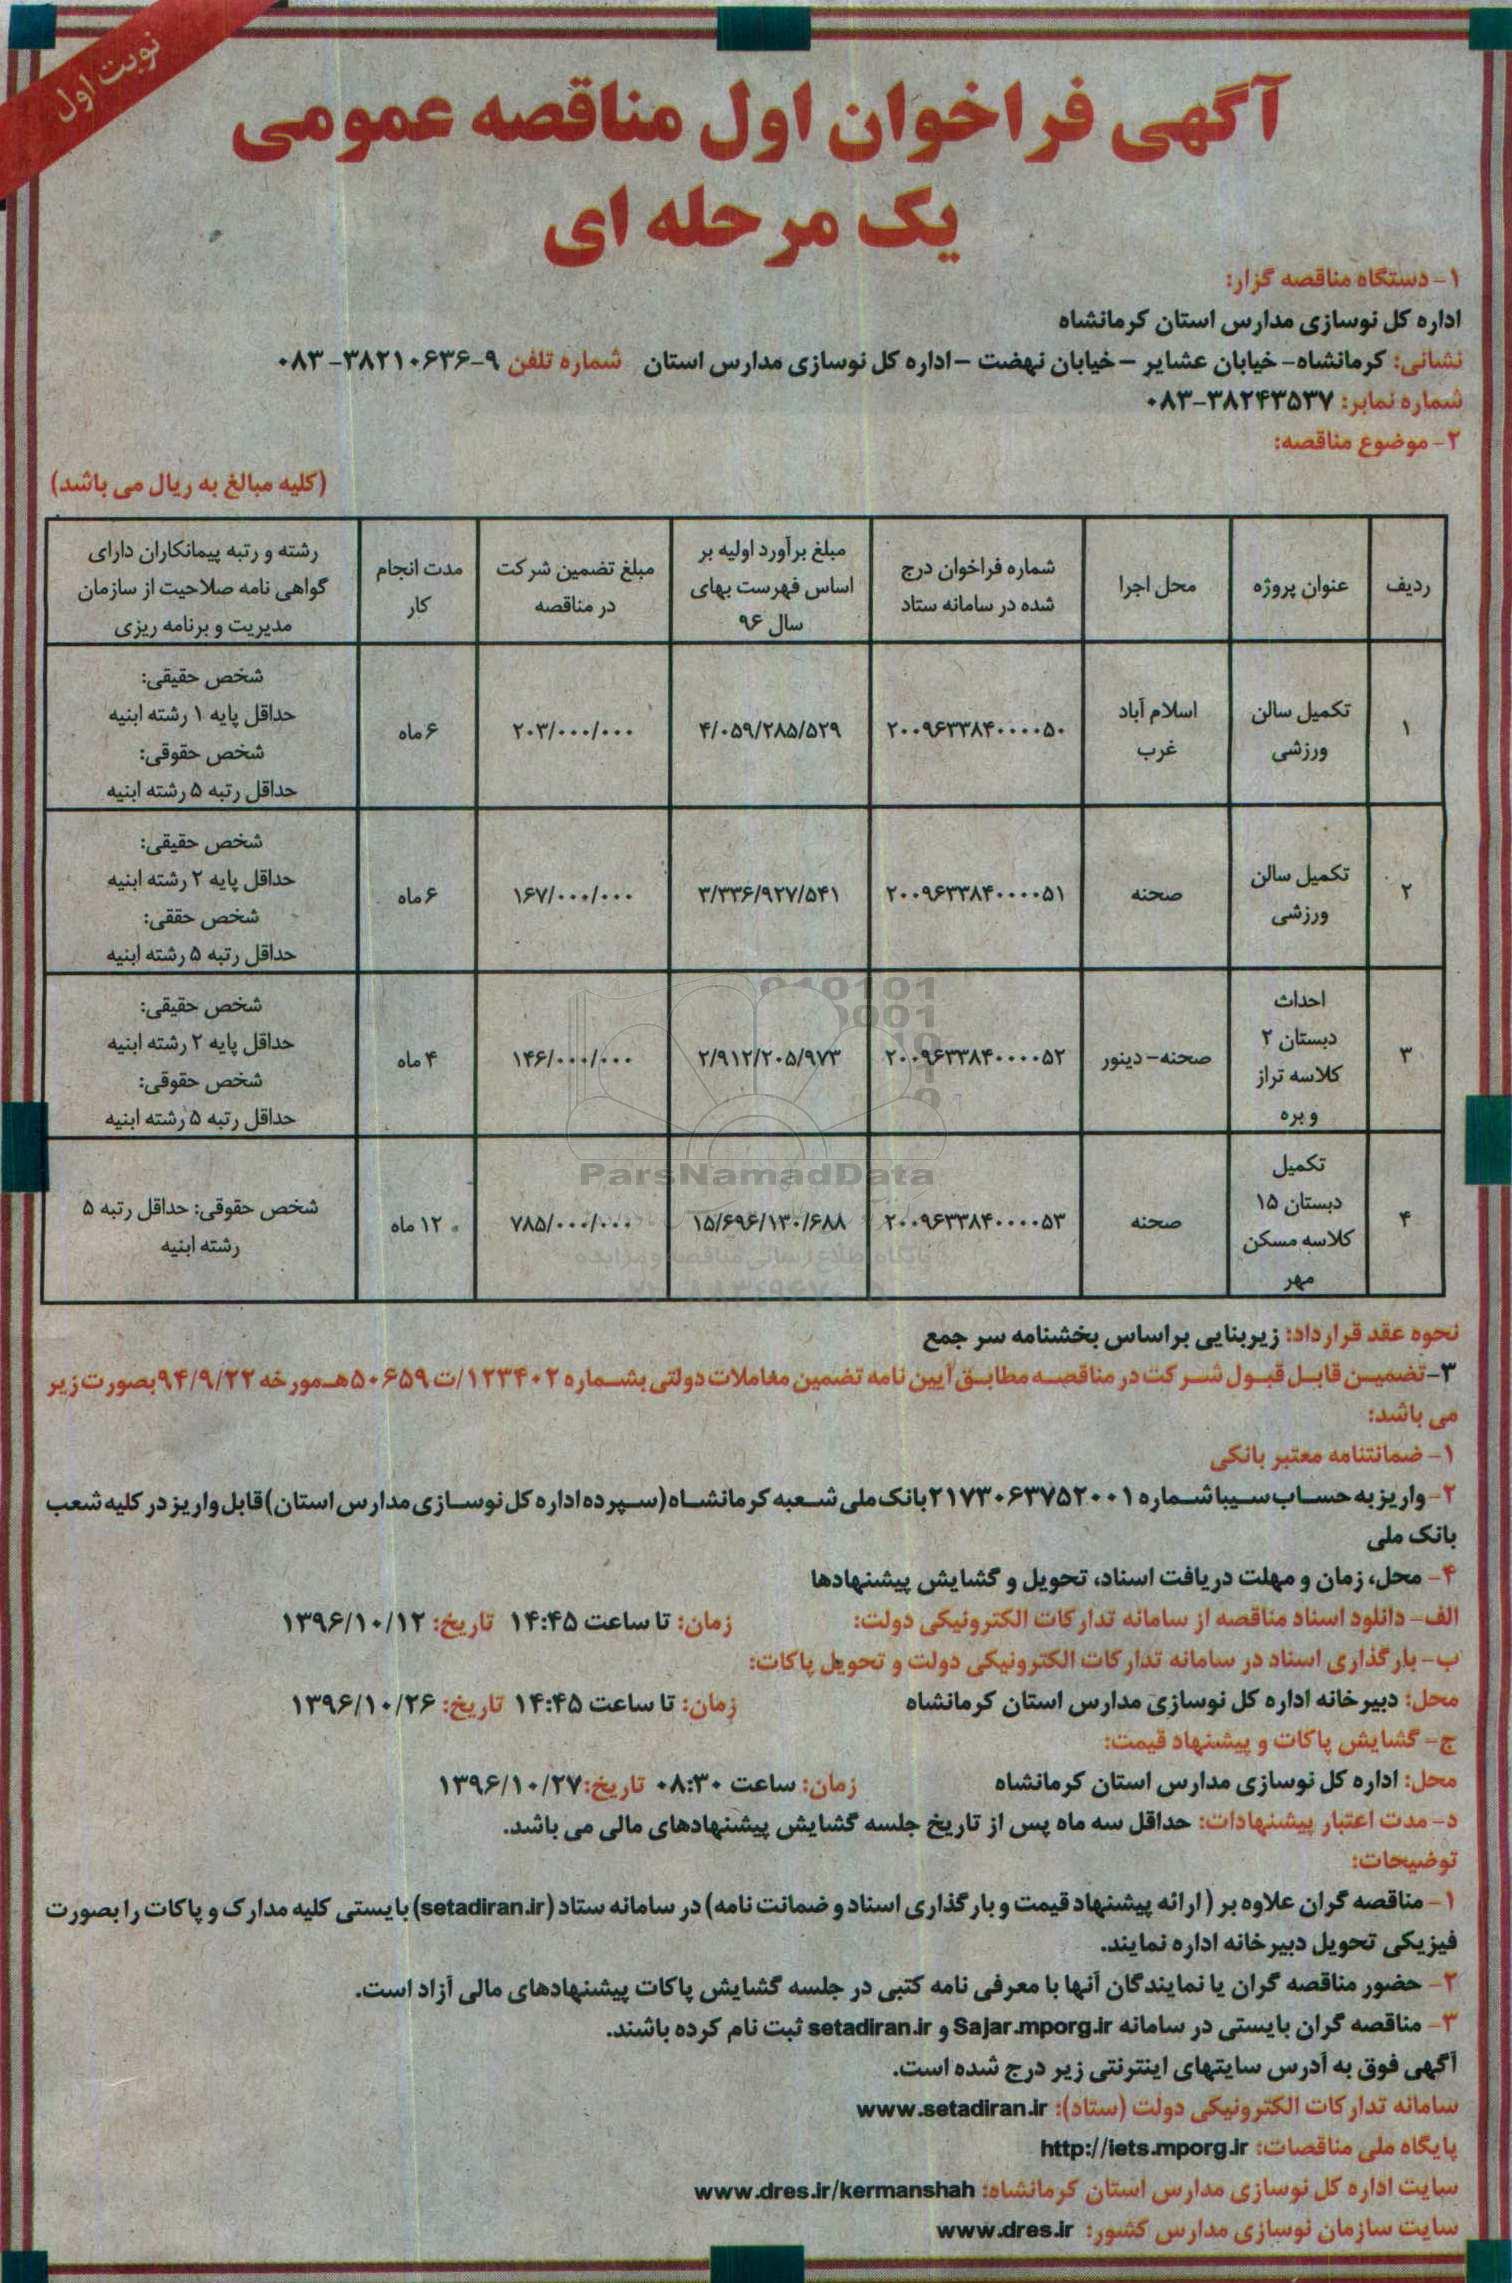 نوبت اول
آگهی فراخوان اول مناقصه عمومی
یک مرحله ای
۱- دستگاه مناقصه گزار:
اداره کل نوسازی مدارس استان کرمانشاه
نشانی: کرمانشاه- خیابان عشایر - خیابان نهضت - اداره کل نوسازی مدارس استان شماره تلفن ۹-۳۸۲۱۰۶۳۶-۰۸۳
شماره نمابر: ۳۸۲۴۳۵۳۷-۰۸۳
۲- موضوع مناقصه:
(کلیه مبالغ به ریال می باشد)
ردیف
عنوان پروژه
محل اجرا
شماره فراخوان درج
شده در سامانه ستاد
مبلغ برآورد اولیه بر
اساس فهرست بهای
سال ۹۶
مبلغ تضمین شرکت
در مناقصه
مدت انجام
کار
رشته و رتبه پیمانکاران دارای
گواهی نامه صلاحیت از سازمان
مدیریت و برنامه ریزی
۱
تکمیل سالن
ورزشی
اسلام آباد
غرب
۲۰۰۹۶۳۳۸۴۰۰۰۰۵۰
۴/۰۵۹/۲۸۵/۵۲۹
۲۰۳/۰۰۰/۰۰۰
۶ ماه
شخص حقیقی:
حداقل پایه ۱ رشته ابنیه
شخص حقوقی:
حداقل رتبه ۵ رشته ابنیه
۲
تکمیل سالن
ورزشی
صحنه
۲۰۰۹۶۳۳۸۴۰۰۰۰۵۱
۳/۳۳۶/۹۲۷/۵۴۱
۱۶۷/۰۰۰/۰۰۰
۶ ماه
شخص حقیقی:
حداقل پایه ۲ رشته ابنیه
شخص حققی:
حداقل رتبه ۵ رشته ابنیه
۳
احداث
دبستان ۲
کلاسه تراز
و بره
صحنه- دینور
۲۰۰۹۶۳۳۸۴۰۰۰۰۵۲
۲/۹۱۲/۲۰۵/۹۷۳
۱۴۶/۰۰۰/۰۰۰
۴ ماه
شخص حقیقی:
حداقل پایه ۲ رشته ابنیه
شخص حقوقی:
حداقل رتبه ۵ رشته ابنیه
۴
تکمیل
دبستان ۱۵
کلاسه مسکن
مهر
صحنه
۲۰۰۹۶۳۳۸۴۰۰۰۰۵۳
۱۵/۶۹۶/۱۳۰/۶۸۸
۷۸۵/۰۰۰/۰۰۰
۱۲ ماه
شخص حقوقی: حداقل رتبه ۵
رشته ابنیه
ParsNamadData
پایگاه اطلاع رسانی مناقصه و مزایده
نحوه عقد قرارداد: زیربنایی براساس بخشنامه سر جمع
۳-تضمین قابل قبول شرکت در مناقصه مطابق آیین نامه تضمین معاملات دولتی بشماره ۱۲۳۴۰۲/ت ۵۰۶۵۹هـ مورخه ۹۴/۹/۲۲ بصورت زیر
می باشد:
۱- ضمانتنامه معتبر بانکی
۲- واریز به حساب سیبا شماره ۲۱۷۳۰۶۳۷۵۲۰۰۱ بانک ملی شعبه کرمانشاه (سپرده اداره کل نوسازی مدارس استان) قابل واریز در کلیه شعب
بانک ملی
۴- محل، زمان و مهلت دریافت اسناد، تحویل و گشایش پیشنهادها
الف- دانلود اسناد مناقصه از سامانه تدارکات الکترونیکی دولت: زمان: تا ساعت ۱۴:۴۵ تاریخ: ۱۳۹۶/۱۰/۱۲
ب- بارگذاری اسناد در سامانه تدارکات الکترونیکی دولت و تحویل پاکات:
محل: دبیرخانه اداره کل نوسازی مدارس استان کرمانشاه زمان: تا ساعت ۱۴:۴۵ تاریخ: ۱۳۹۶/۱۰/۲۶
ج- گشایش پاکات و پیشنهاد قیمت:
محل: اداره کل نوسازی مدارس استان کرمانشاه زمان: ساعت ۰۸:۳۰ تاریخ: ۱۳۹۶/۱۰/۲۷
د- مدت اعتبار پیشنهادات: حداقل سه ماه پس از تاریخ جلسه گشایش پیشنهادهای مالی می باشد.
توضیحات:
۱- مناقصه گران علاوه بر (ارائه پیشنهاد قیمت و بارگذاری اسناد و ضمانت نامه) در سامانه ستاد (setadiran.ir) بایستی کلیه مدارک و پاکات را بصورت
فیزیکی تحویل دبیرخانه اداره نمایند.
۲- حضور مناقصه گران یا نمایندگان آنها با معرفی نامه کتبی در جلسه گشایش پاکات پیشنهادهای مالی آزاد است.
۳- مناقصه گران بایستی در سامانه Sajar.mporg.ir و setadiran.ir ثبت نام کرده باشند.
آگهی فوق به آدرس سایتهای اینترنتی زیر درج شده است.
سامانه تدارکات الکترونیکی دولت (ستاد): www.setadiran.ir
پایگاه ملی مناقصات: http://iets.mporg.ir
سایت اداره کل نوسازی مدارس استان کرمانشاه: www.dres.ir/kermanshah
سایت سازمان نوسازی مدارس کشور: www.dres.ir